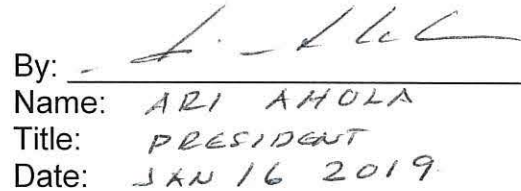 By:
Name: ARI AHOLA
Title: PRESIDENT
Date: JAN 16 2019